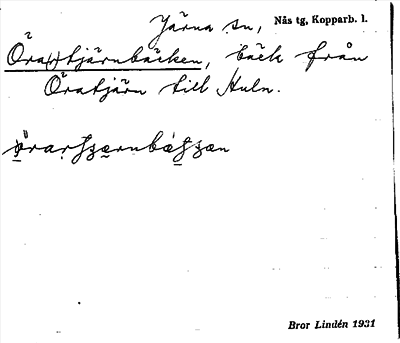 Järna sn, Nås tg, Kopparb. l.
Öra(r)tjärnbäcken, bäck från
Öratjärn till Huln.
Bror Lindén 1931